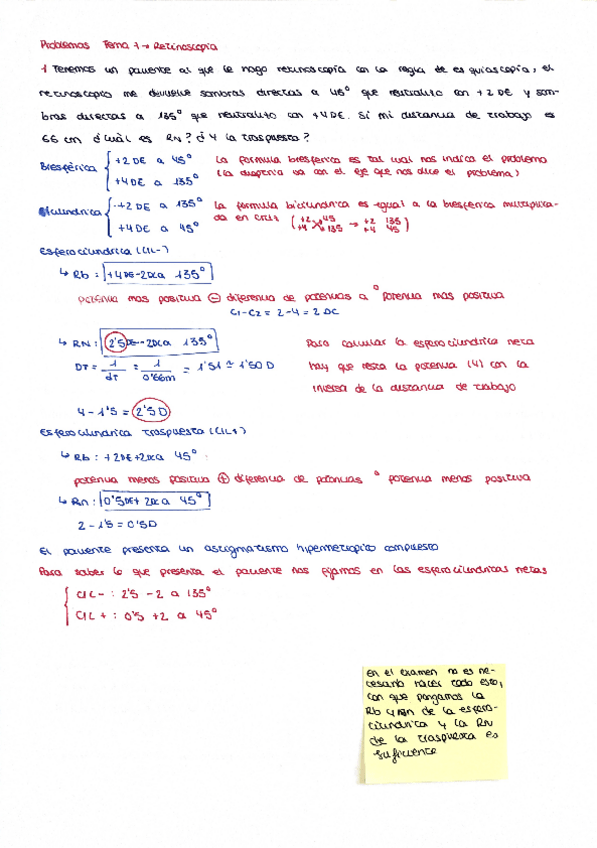 Problemas Tema 1 → Retinoscopía
1 Tenemos un paciente al que le hago retinoscopía con la regla de esquiascopía, el
retinoscopio me devuelve sombras directas a 45° que neutralizo con +2 DE y som-
bras directas a 135° que neutralizo con +4DE. Si mi distancia de trabajo es
66 cm ¿cuál es RN? ¿y la traspuesta?
Biesférica { +2 DE a 45°
+4 DE a 135°
La formula biesferica es tal cual nos indica el problema
(la dioptria va con el eje que nos dice el problema)
Bicilindrica { +2 DE a 135°
+4 DE a 45°
La formula bicilindrica es igual a la biesferica multiplica-
da en cruz (+2 45 +4 135 → +2 135 +4 45)
Esferocilindrica (CIL-)
↳ Rb: +4DE-2DC a 135°
potencia mas positiva ⊖ diferencia de potencias a ° potencia mas positiva
C1-C2 = 2-4 = 2 DC
↳ RN: 2'5DE-2DC a 135°
DT = 1/dT = 1/0'66m = 1'51 ≅ 1'50 D
4-1'5 = 2'5 D
Para calcular la esferocilindrica neta
hay que resta la potencia (4) con la
inversa de la distancia de trabajo
Esferocilindrica traspuesta (CIL+)
↳ Rb: +2DE+2DC a 45°
potencia menos positiva ⊕ diferencia de potencias ° potencia menos positiva
↳ Rn: 0'5DE+ 2DC a 45°
2-1'5 = 0'5D
El paciente presenta un astigmatismo hipermetropico compuesto
Para saber lo que presenta el paciente nos fijamos en las esferocilindricas netas
{ CIL - : 2'5 -2 a 135°
CIL + : 0'5 +2 a 45°
En el examen no es ne-
cesario hacer todo esto,
con que pongamos la
Rb y RN de la esfero-
cilindrica y la RN
de la traspuesta es
suficiente